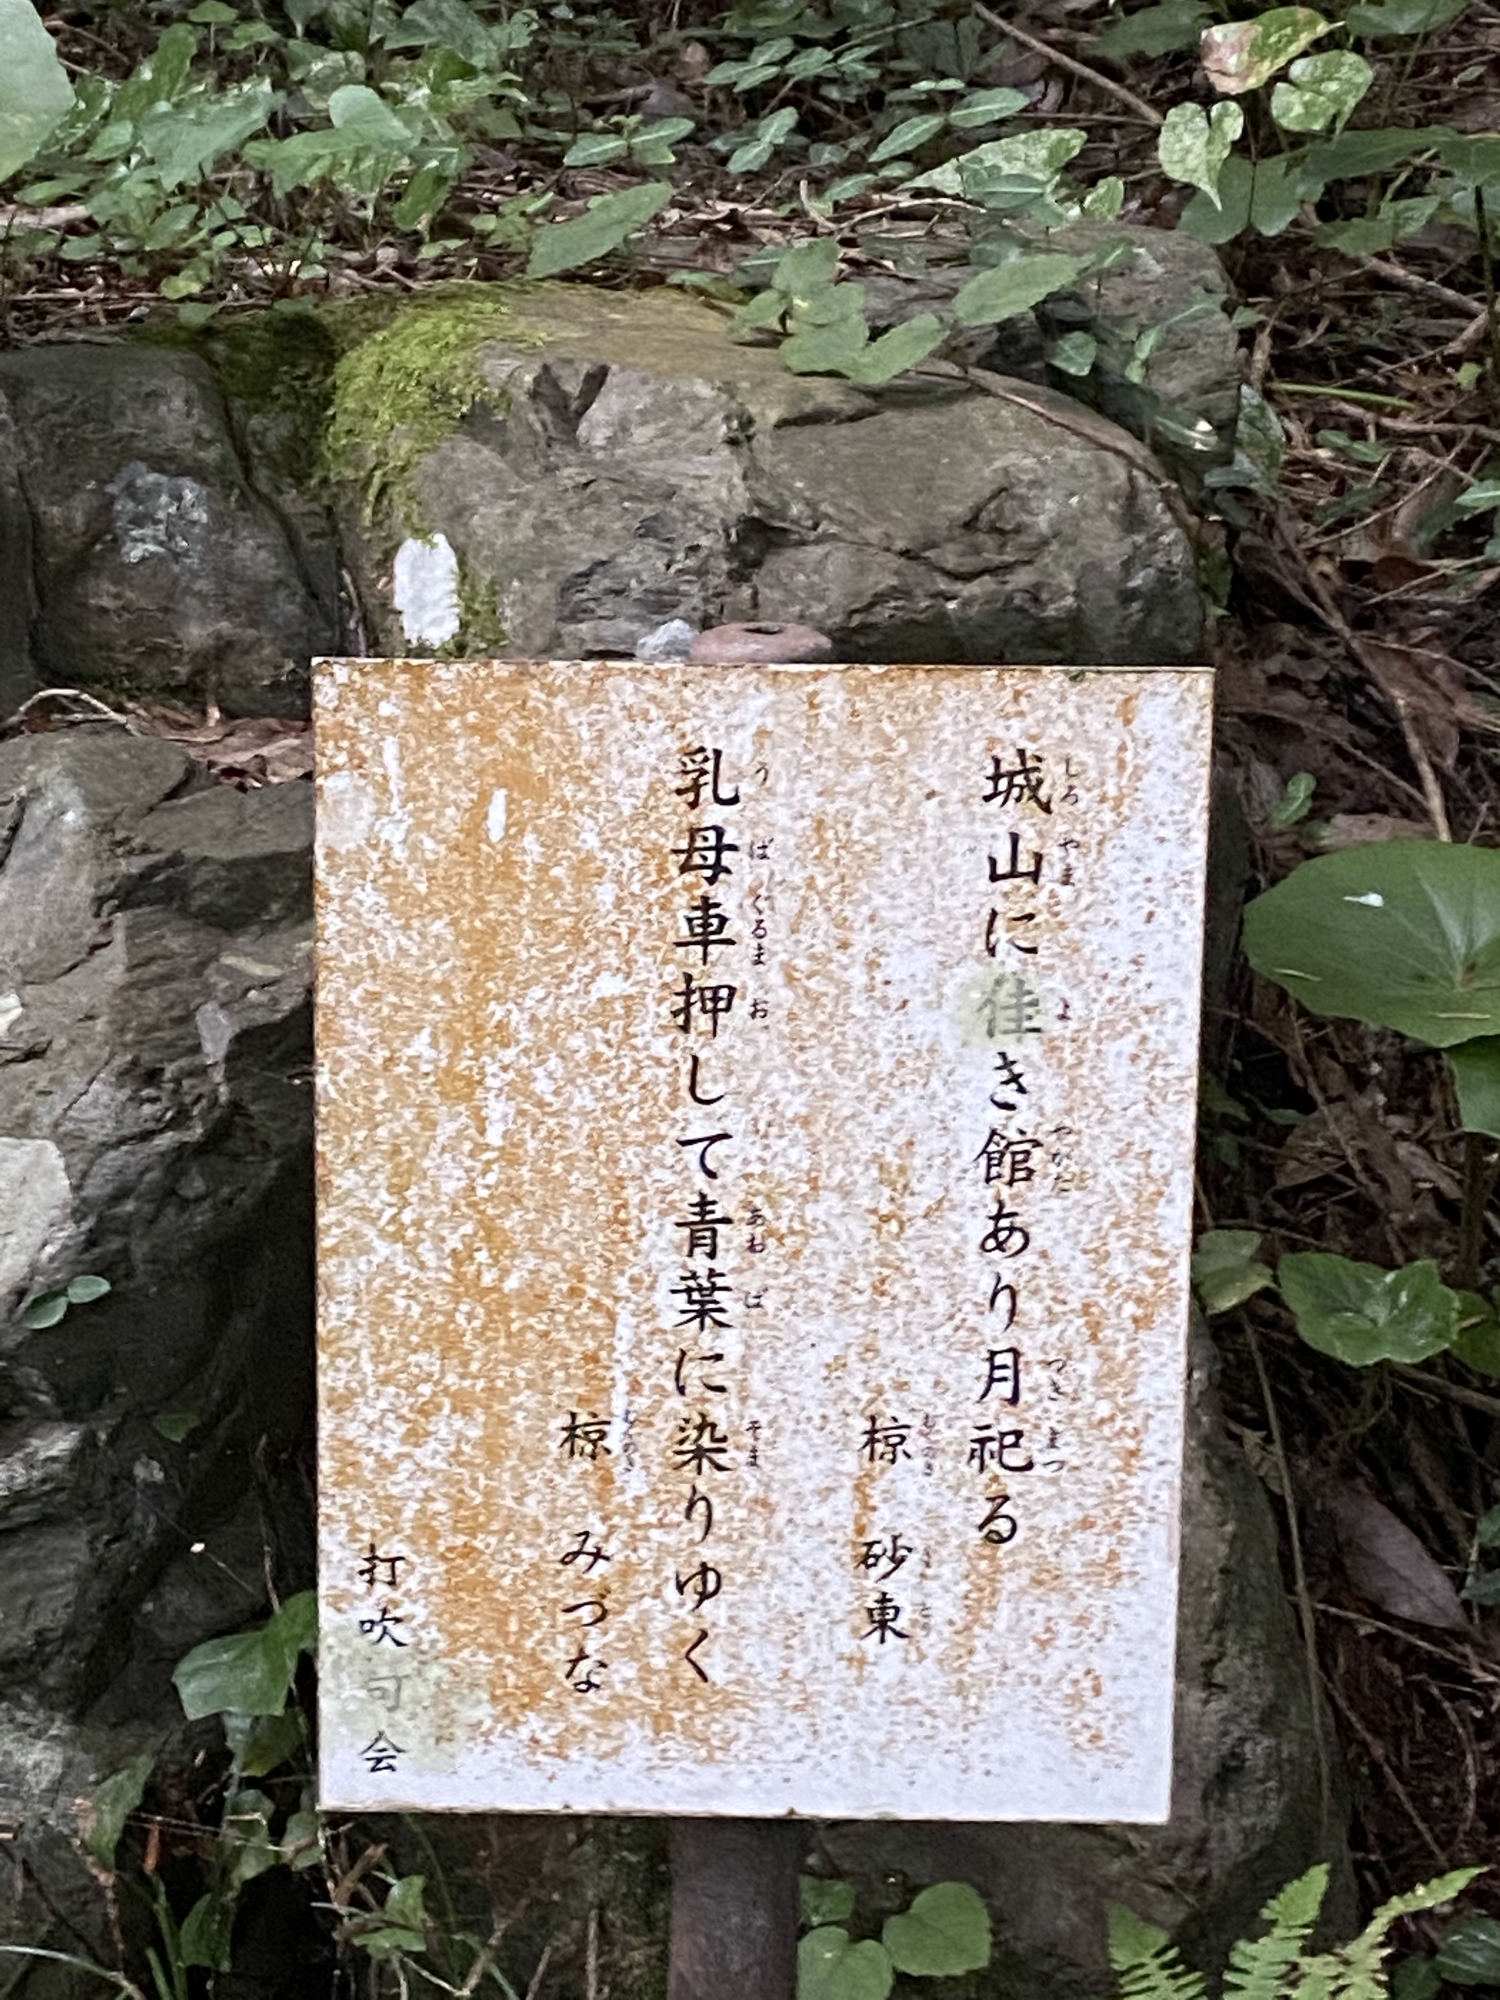 城山に佳き館あり月祀る
椋 砂東
乳母車押して青葉に染りゆく
椋 みづな
打吹 会